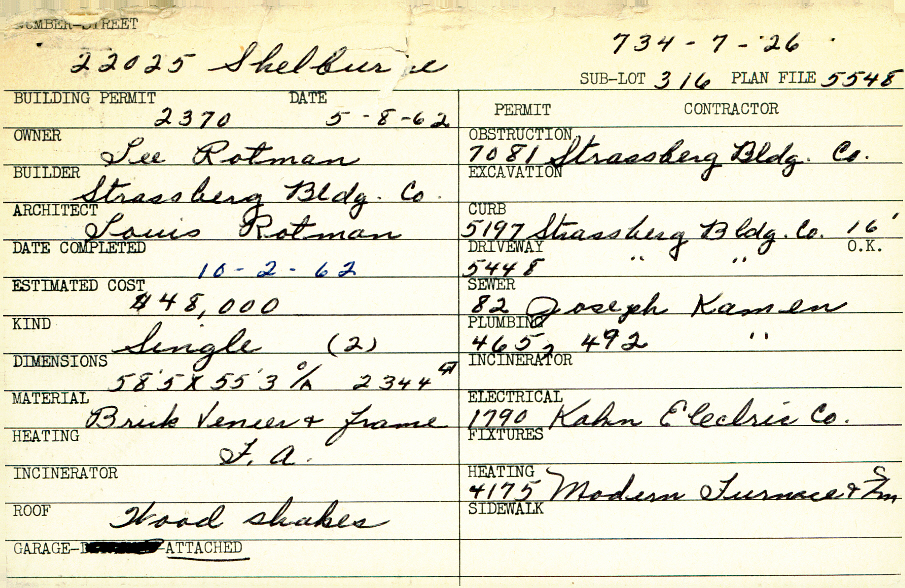 NUMBER-STREET
22025 Shelburne
734-7-26
SUB-LOT 316 PLAN FILE 5548
BUILDING PERMIT DATE
2370 5-8-62
PERMIT CONTRACTOR
OWNER
Lee Rotman
BUILDER
Strassberg Bldg. Co.
ARCHITECT
Louis Rotman
DATE COMPLETED
10-2-62
ESTIMATED COST
$48,000
KIND
Single (2)
DIMENSIONS
58'5 x 55'3 o/A 2344
MATERIAL
Brick Veneer & frame
HEATING
F.A.
INCINERATOR
ROOF
Wood shakes
GARAGE- -ATTACHED
OBSTRUCTION
7081 Strassberg Bldg. Co.
EXCAVATION
CURB
5197 Strassberg Bldg. Co. 16'
DRIVEWAY O.K.
5448 " "
SEWER
82 Joseph Kamen
PLUMBING
4652 492 "
INCINERATOR
ELECTRICAL
1790 Kahn Electric Co.
FIXTURES
HEATING
4175 Modern Furnace &
SIDEWALK